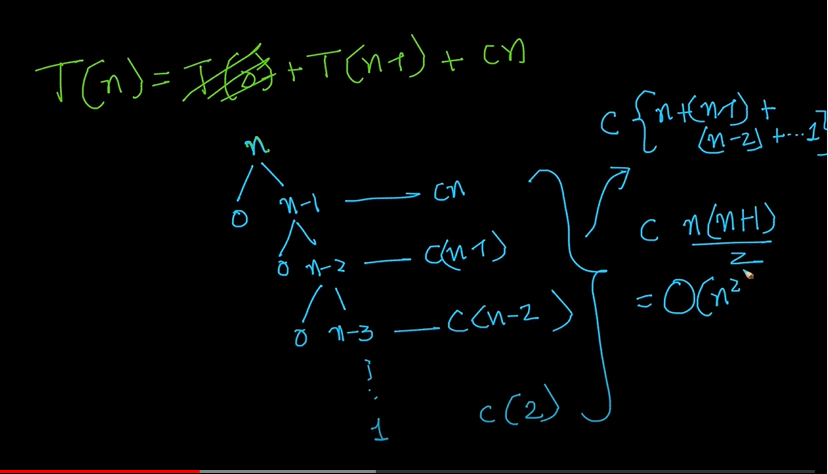 T(n) = T(0) + T(n-1) + cn
n
0 n-1 cn
0 n-2 c(n-1)
0 n-3 c(n-2)
1 c(2)
c { n+(n-1) +
(n-2) + ... 1 }
c n(n+1)
2
= O(n²